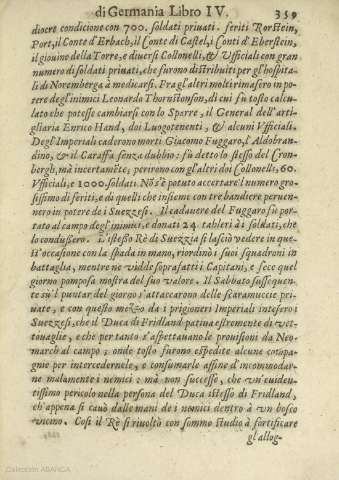 di Germania Libro IV. 359
diocre condizione con 700. soldati priuati. feriti Rorstein,
Port, il Conte d'Erbach, il Conte di Castel, i Conti d'Eberstein,
il giouine della Torre, e diuersi Collonelli, & Vfficiali con gran
numero di soldati priuati, che furono distribuiti per gl'hospita-
li di Noremberga à medicarsi. Fra gl'altri molti rimasero in po-
tere degl'inimici Leonardo Thornstonson, di cui fù tosto calcu-
lato che potesse cambiarsi con lo Sparre, il General dell'arti-
gliaria Enrico Hand, doi Luogotenenti, & alcuni Vfficiali.
Degl'Imperiali caderono morti Giacomo Fuggaro, l'Aldobran-
dino, & il Caraffa senza dubbio: fù detto lo stesso del Cron-
bergh, mà incertamẽte; perirono con gl'altri doi Collonelli, 60.
Vfficiali, e 1000. soldati. Nõ s'è potuto accertare'l numero gros-
sissimo di feriti, e di quelli che insieme con tre bandiere peruen-
nero in potere de i Suezzesi. Il cadauere del Fuggaro fù por-
tato al campo degl'inimici, e donati 24 tahleri ai soldati, che
lo condussero. L'istesso Rè di Suezzia si lasciò vedere in que-
st'occasione con la spada in mano, riordinò i suoi squadroni in
battaglia, mentre ne vidde soprafatti i Capitani, e fece quel
giorno pomposa mostra del suo valore. Il Sabbato sussequen-
te su'l puntar del giorno s'attaccarono delle scaramuccie pri-
uate, e con questo mezzo da i prigioneri Imperiali intesero i
Suezzesi, che il Duca di Fridland patiua estremente di vet-
touaglie, e che per tanto s'aspettauano le prouisioni da Neo-
march al campo; onde tosto furono espedite alcune compa-
gnie per intercedernele, e consumarle affine d'incommodar-
ne malamente i nemici: mà non successe, che vn'euiden-
tissimo pericolo nella persona del Duca istesso di Fridland,
ch'appena si cauò dalle mani de i nemici dentro à vn bosco
vicino. Così il Rè si riuoltò con sommo studio à fortificare
gl'allog-
Colección ABANCA